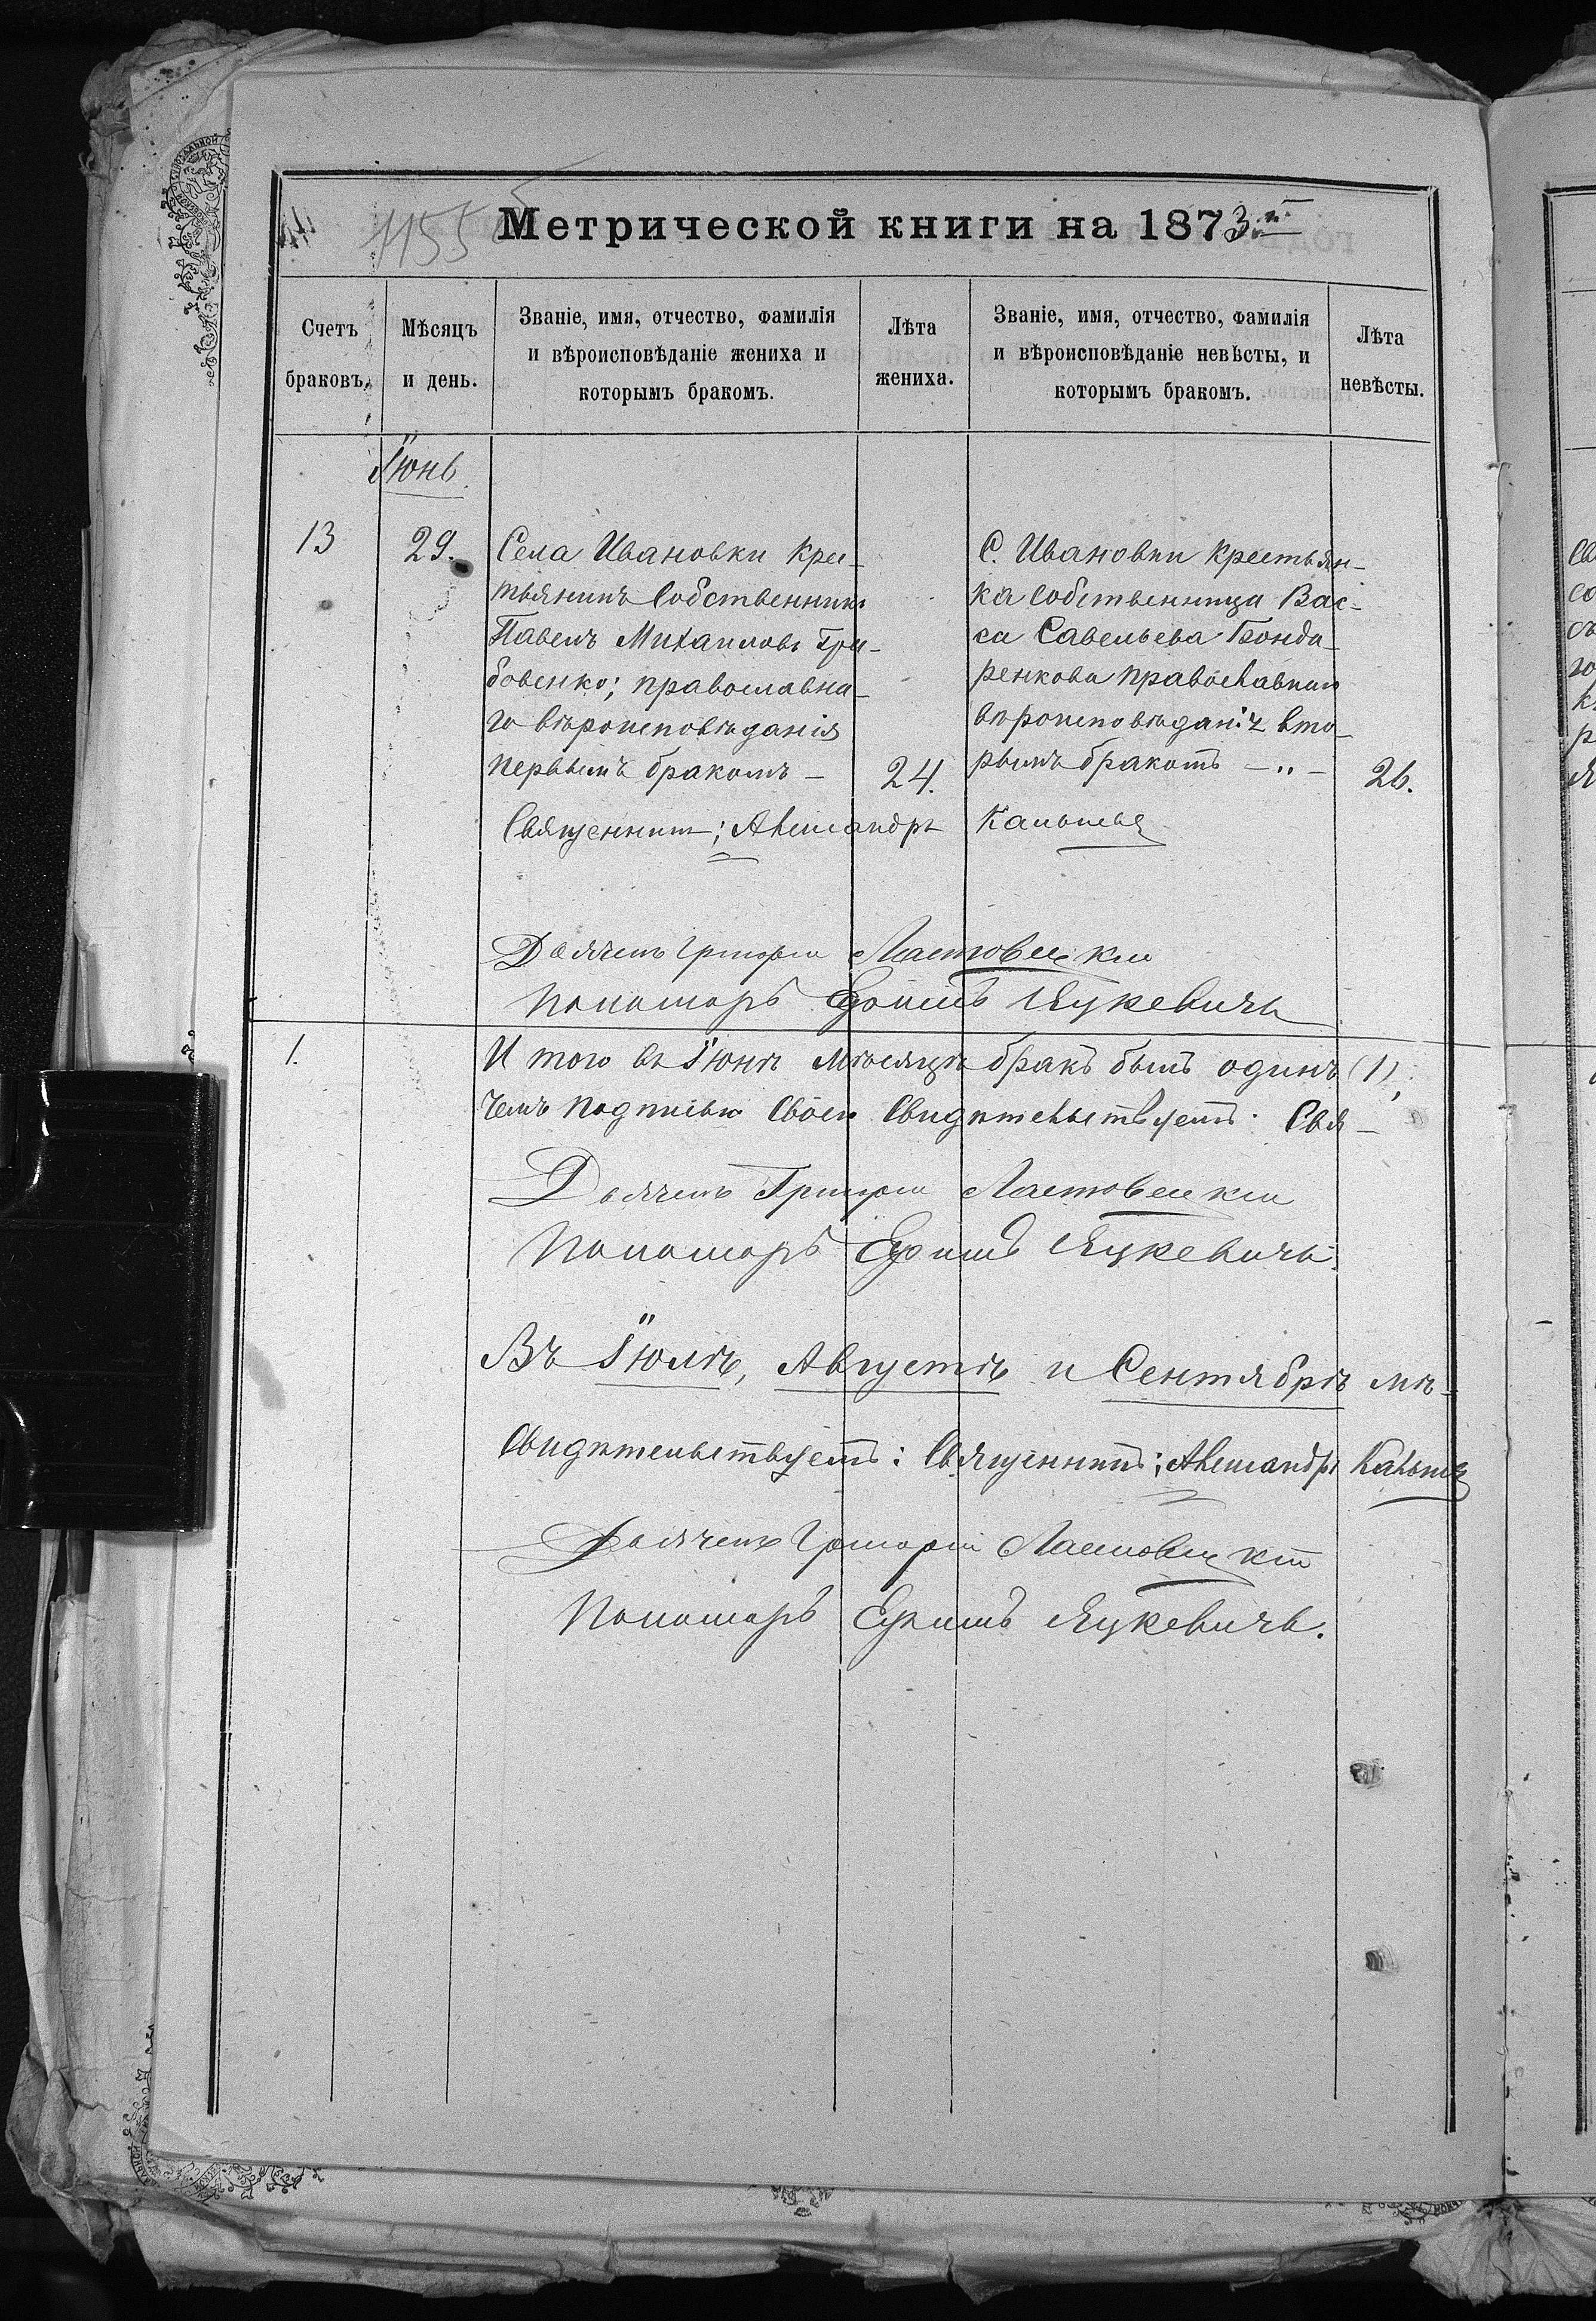 1155 Метрической книги на 1873й
Счетъ браковъ.
Мѣсяцъ и день.
Званіе, имя, отчество, фамилія
и вѣроисповѣданіе жениха и
которымъ бракомъ.
Лѣта жениха.
Званіе, имя, отчество, фамилія
и вѣроисповѣданіе невѣсты, и
которымъ бракомъ.
Лѣта невѣсты.
Іюнь
13
29.
Села Ивановки крес-
тьянинъ собственникъ
Павелъ Михаиловъ Гри-
бовенко; православна-
го вѣроисповѣданія
первымъ бракомъ –
24.
С. Ивановки крестьян-
ка собственница Вас-
са Савельева Бонда-
ренкова православнаго
вѣроисповѣданія вто-
рымъ бракомъ – „ –
26.
Священникъ; Александръ
Дьячекъ Григорій Ластовецкій
Пономарь Ефимъ Яцкевичъ
1.
И того въ Іюнѣ мѣсяцѣ бракъ былъ одинъ (1),
чемъ подписью своею свидѣтельствуетъ: Свя-
Дьячекъ Григорій Ластовецкій
Пономарь Ефимъ Яцкевичъ.
Въ Іюлѣ, Августѣ и Сентябрѣ мѣ-
свидѣтельствуетъ: Священникъ; Александръ
Дьячекъ Григорій Ластовецкій
Пономарь Ефимъ Яцкевичъ.